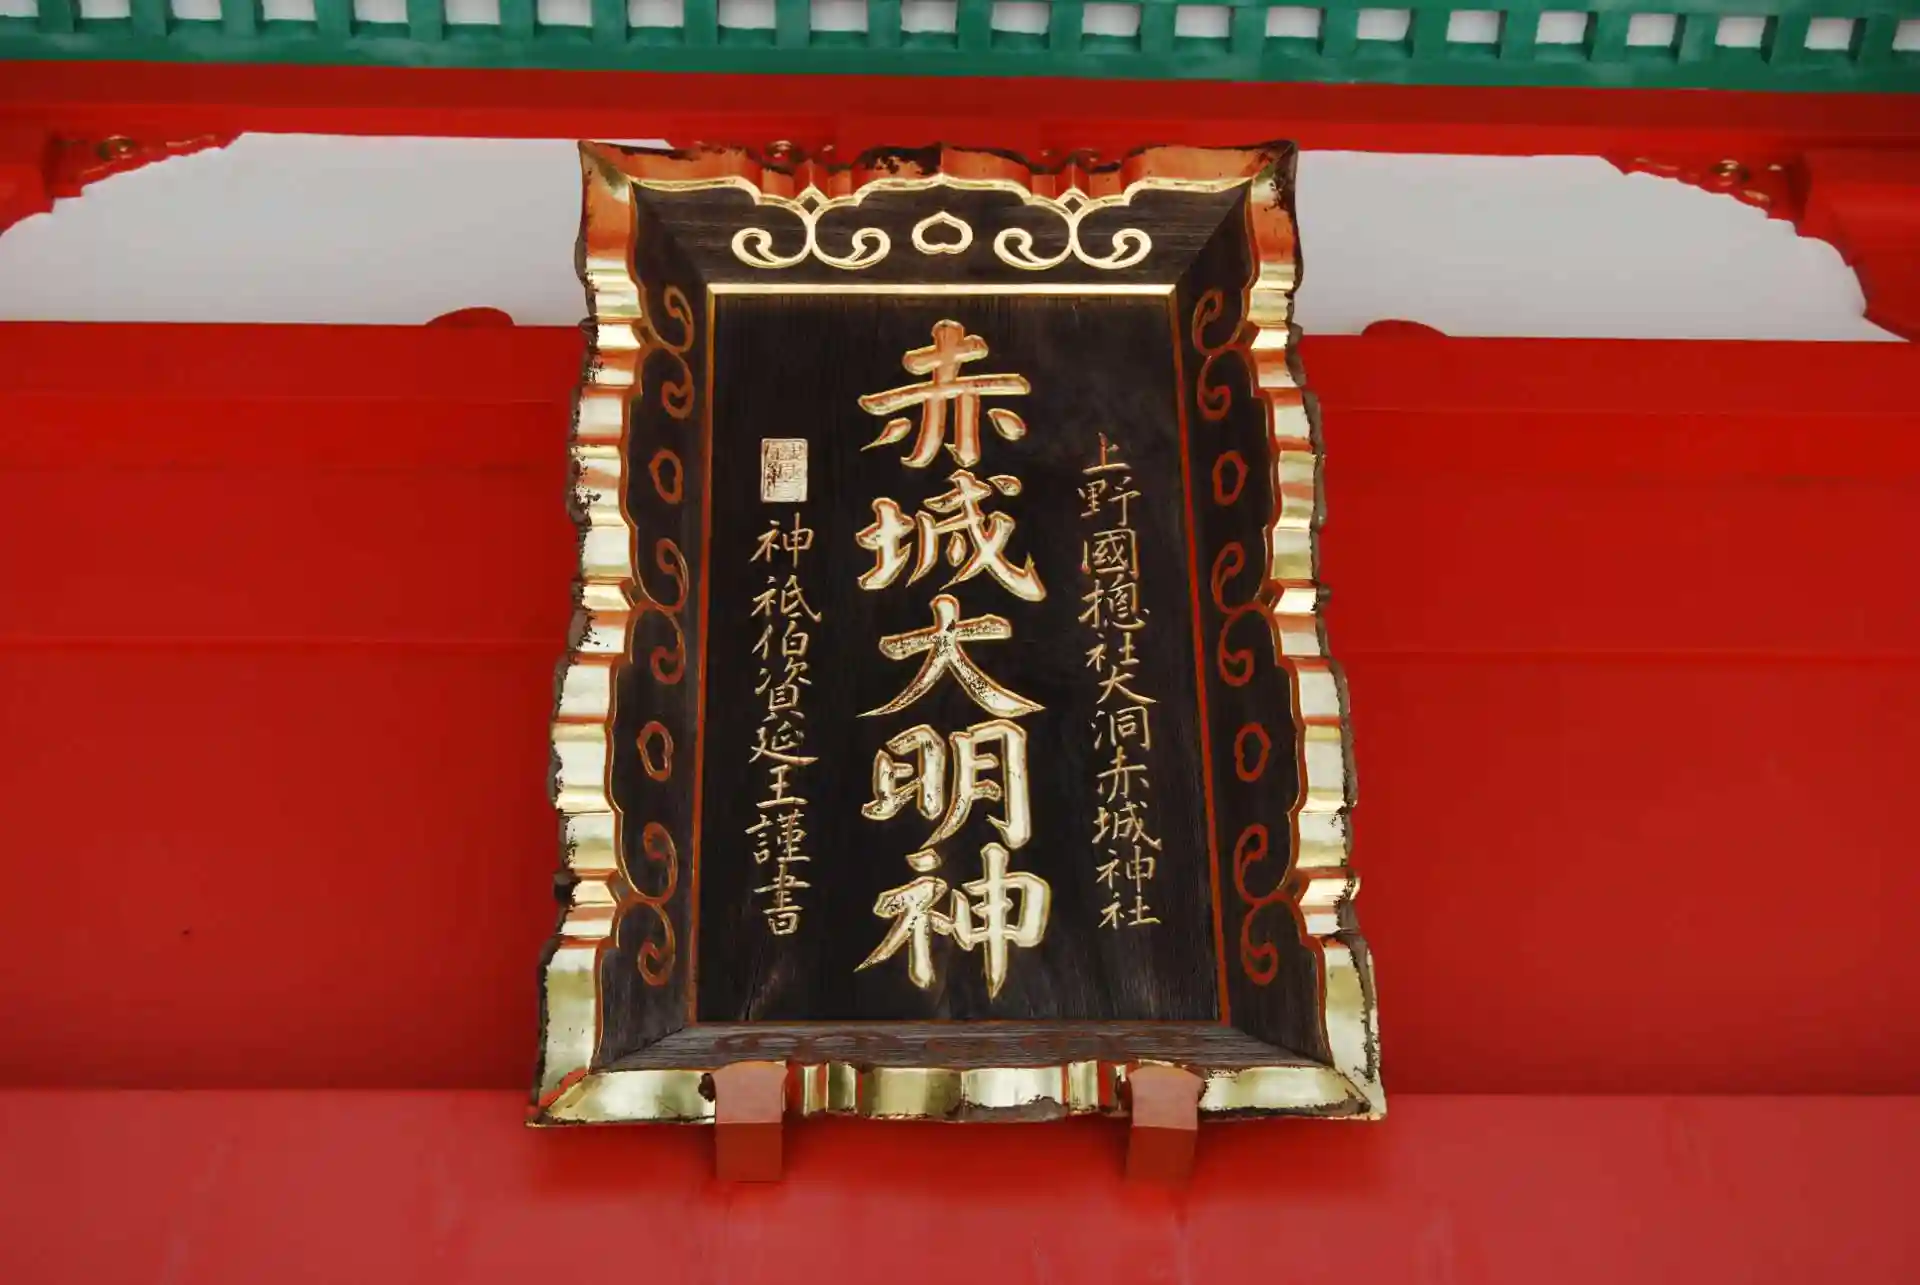 上野國摠社大洞赤城神社
赤城大明神
神祇伯資延王謹書